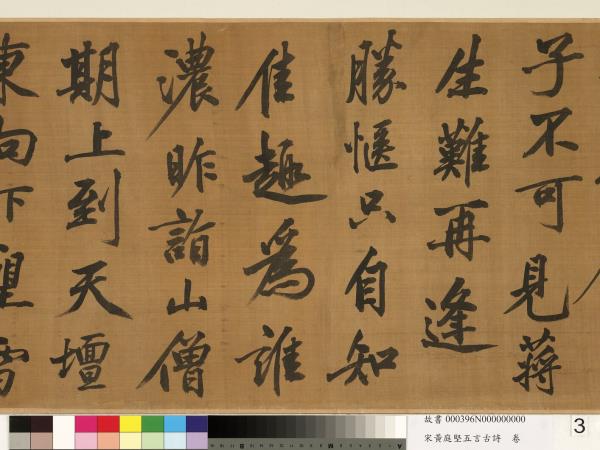 子不可見蔣
生難再逢
勝愜只自知
佳趣為誰
濃昨詣山僧
期上到天壇
東向下望雪
故書 000396N000000000
宋黃庭堅五言古詩 卷
3